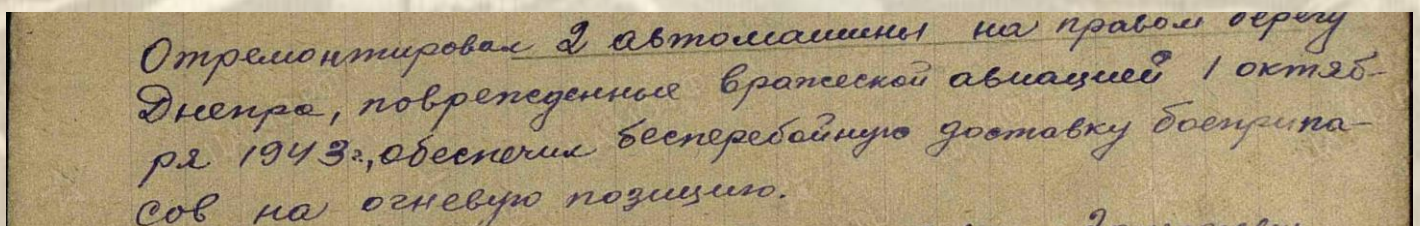 Отремонтировал 2 автомашины на правом берегу
Днепра, поврежденные вражеской авиацией 1 октяб-
ря 1943г., обеспечил бесперебойную доставку боеприпа-
сов на огневую позицию.